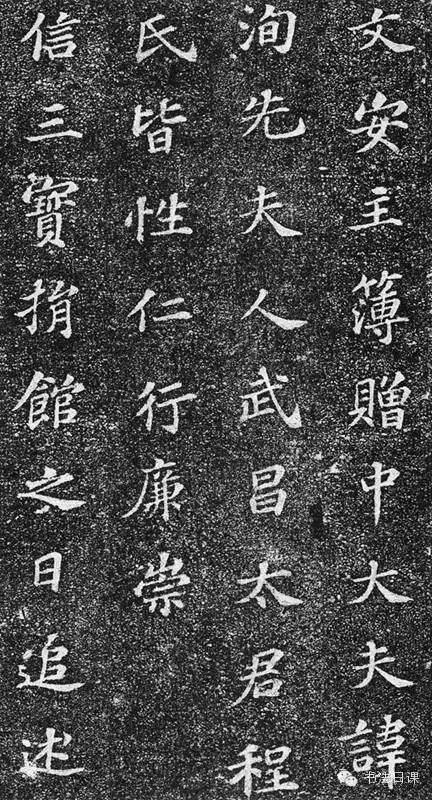 文安主簿贈中大夫諱
洵先夫人武昌太君程
氏皆性仁行廉崇
信三寶捐館之日追述
书法日课